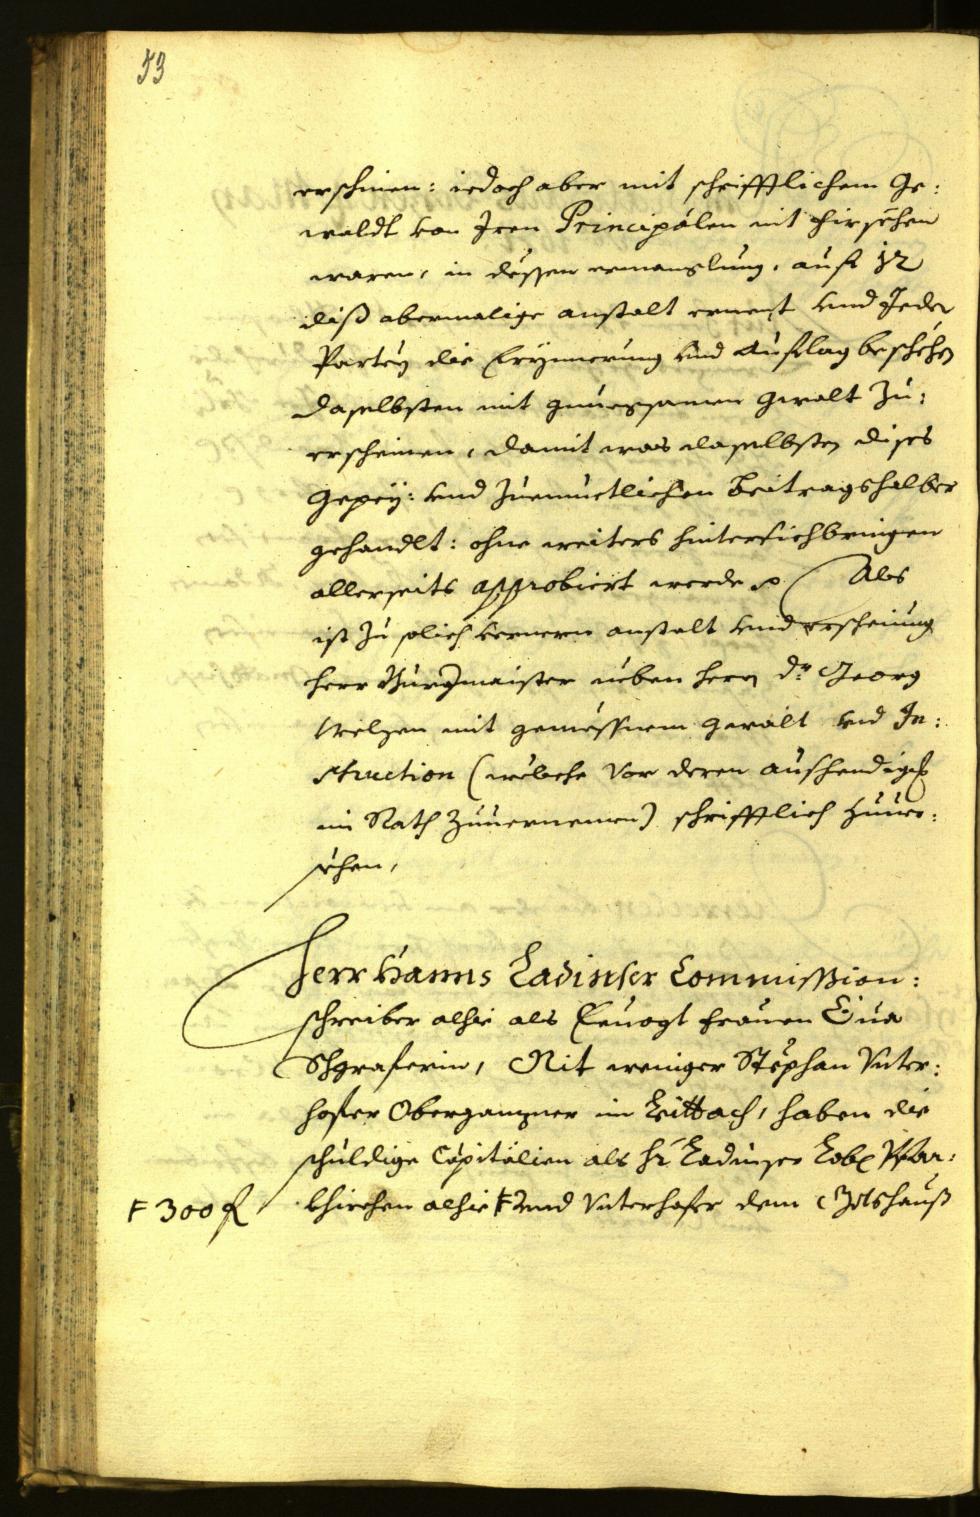 53
erschinen: iedoch aber mit schrifftlichem Ge:
waldt von Iren Principälen nit fürsehen
waren, in dessen ermanglung, auf 12
diß abermalige anstalt ernent vnd Jeder
Parteÿ die Erÿnnerung vnd Auflag beschehen
daselbsten mit gnuegsamen Gwalt zu:
erscheinen, damit was daselbsten dises
Gepeÿ: vnd zuemuetlichen Beitragshalber
gehandlt: ohne weiters hintersichbringen
allerseits approbiert werde Als
ist zu solich anstalt vnd erscheinung
Herr Burgmaister neben herrn Dr. Georg
Welzen mit gemessnem Gwalt vnd In:
struction (wölche vor deren aushendigung
im Rath zuuernemen) schrifftlich zuuer:
sehen,
Herr Hanns Ladinser Commission:
schreiber alhie als Eeuogt Frauen Eua
Schgraferin, Nit weniger Stephan Vnter:
hofer Obergampner im Vittbach, haben die
schuldige Capitalien als Hr. Ladinser Lobl. Pfar:
F 300 fl
khirchen alhie F vnd Vnterhofer dem Gotshauß